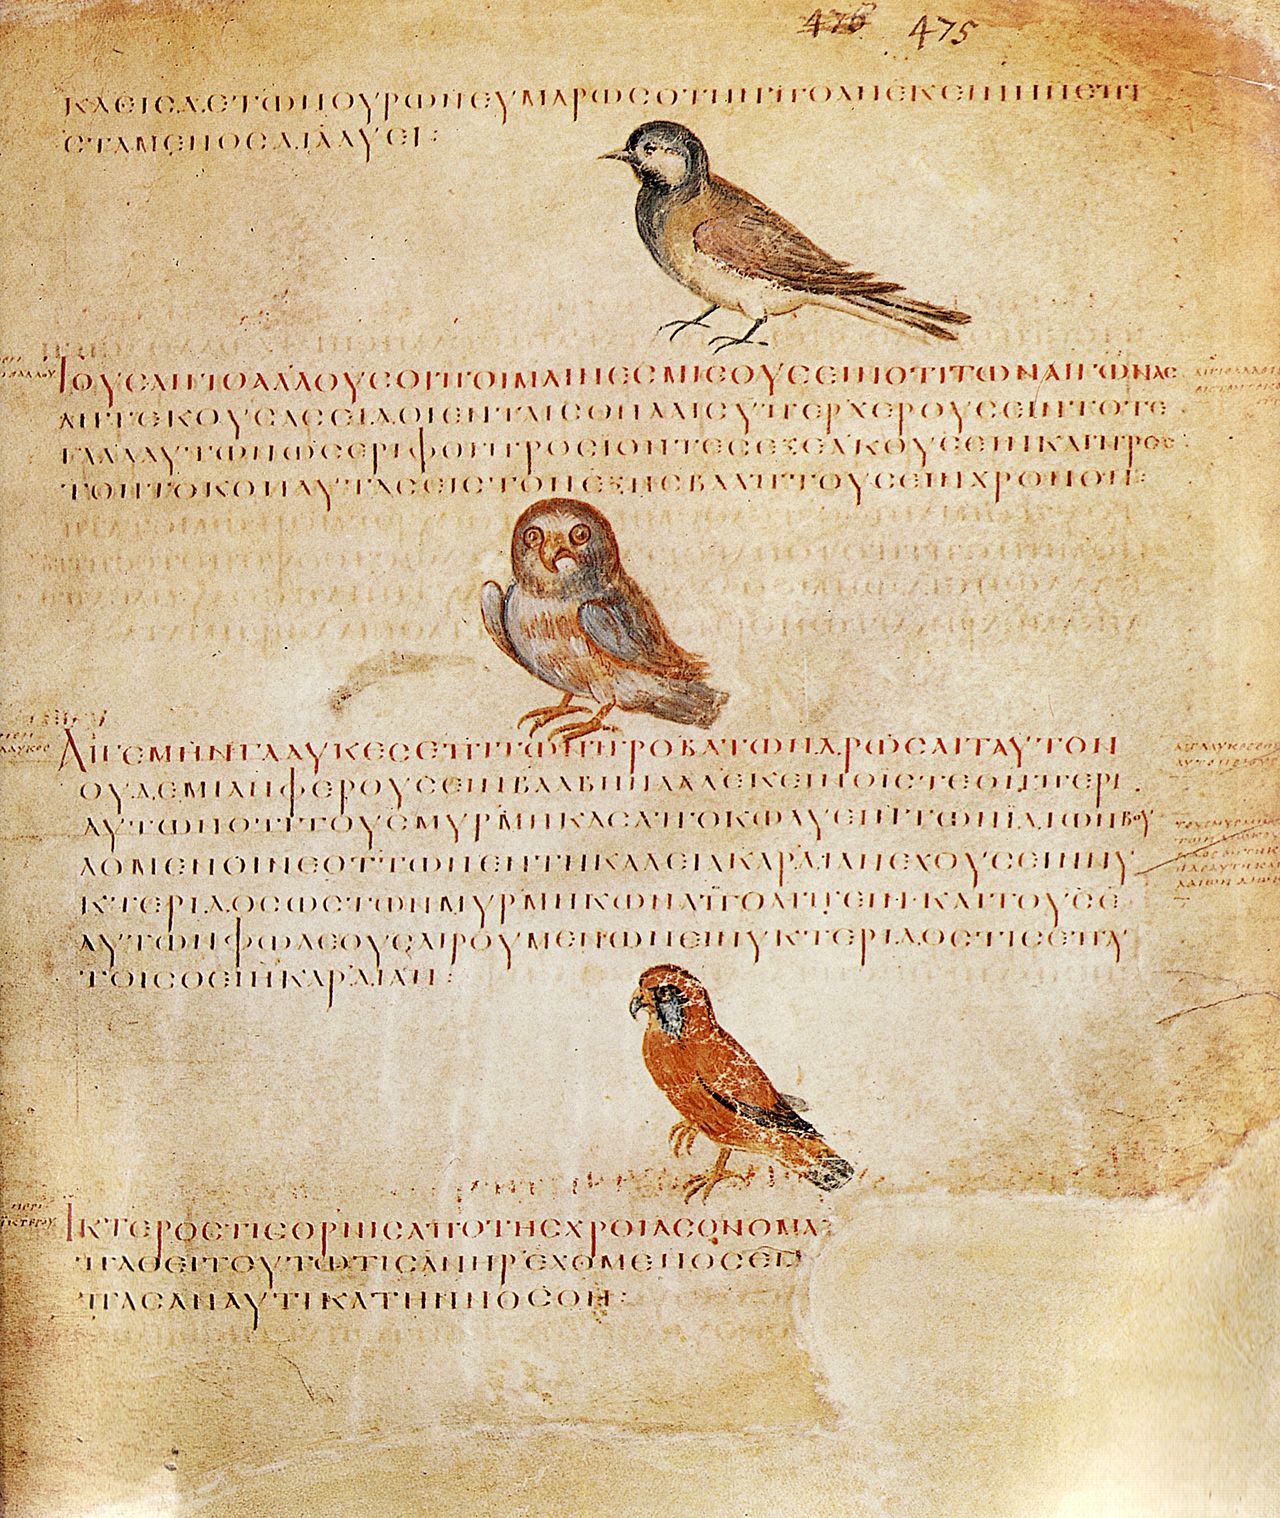 476 475
ΚΑΘΙΕΔΕΤΩΝΟΥΡΩΝΕΥΜΑΡΩϹΟΤΗΝΠΟΛΗΕΚΕΙΝΗΝΕΠΙ
ϹΤΑΜΕΝΟϹΔΙΑΛΥΕΙ:
ΙΟΥϹΑΙΓΙΘΑΛΛΟΥϹΟΙΠΟΙΜΑΙΝΕϹΜΙϹΟΥϹΕΙΝΟΤΙΤΩΝΑΙΓΩΝΑϹ
ΑΠΤΕΚΟΥϹΑϹΕΙΔΟΙΕΝΤΑΙϹΟΠΛΑΙϹΥΠΕΡΧΕΡΟΥϹΕΙΝΤΟΤΕ
ΓΑΛΑΑΥΤΩΝΩϹΕΡΙΦΟΙΠΡΟϹΙΟΝΤΕϹΕΞΕΛΚΟΥϹΕΙΝΚΑΙΠΡΟϹ
ΤΟΝΤΟΚΟΝΑΥΤΑϹΕΙϹΤΟΝΕΞΗϹΒΛΑΠΤΟΥϹΕΙΝΧΡΩΝΟΝ:
ΑΙΓΕΜΗΝΓΛΑΥΚΕϹΕΠΙΤΩΝΠΡΟΒΑΤΩΝΔΡΩϹΑΙΤΑΥΤΟΝ
ΟΥΔΕΜΙΑΝΦΕΡΟΥϹΕΙΝΒΛΑΒΗΝΑΛΕΚΕΙΝΟΙϹΤΕΟΝΠΕΡΙ
ΑΥΤΩΝΟΤΙΤΟΥϹΜΥΡΜΗΚΑϹΑΠΟΚΩΛΥΕΙΝΤΩΝΙΔΙΩΝΒΟΥ
ΛΟΜΕΝΟΙΝΕΟΤΤΩΝΕΝΤΗΚΑΛΕΙΑΚΑΡΔΙΑΝΕΧΟΥϹΕΙΝΝΥ
ΚΤΕΡΙΔΟϹΩϹΤΩΝΜΥΡΜΗΚΩΝΑΠΟΛΙΠΕΙΝ·ΚΑΙΤΟΥϹΕ
ΑΥΤΩΝΦΩΛΕΟΥϹΑΙΡΟΥΜΕΝΩΝΕΙΝΥΚΤΕΡΙΔΟϹΤΙϹΕΠΑΥ
ΤΟΙϹΘΕΙΗΚΑΡΔΙΑΝ:
ΙΚΤΕΡΟϹΤΙϹΟΡΝΙϹΑΠΟΤΗϹΧΡΟΙΑϹΟΝΟΜΑ
ΠΑΘΕΙΤΟΥΤΩΤΙϹΑΝΗΡΕΧΘΟΜΕΝΟϹΕΙ
ΠΑϹΑΝΑΥΤΙΚΑΤΗΝΝΟϹΟΝ: